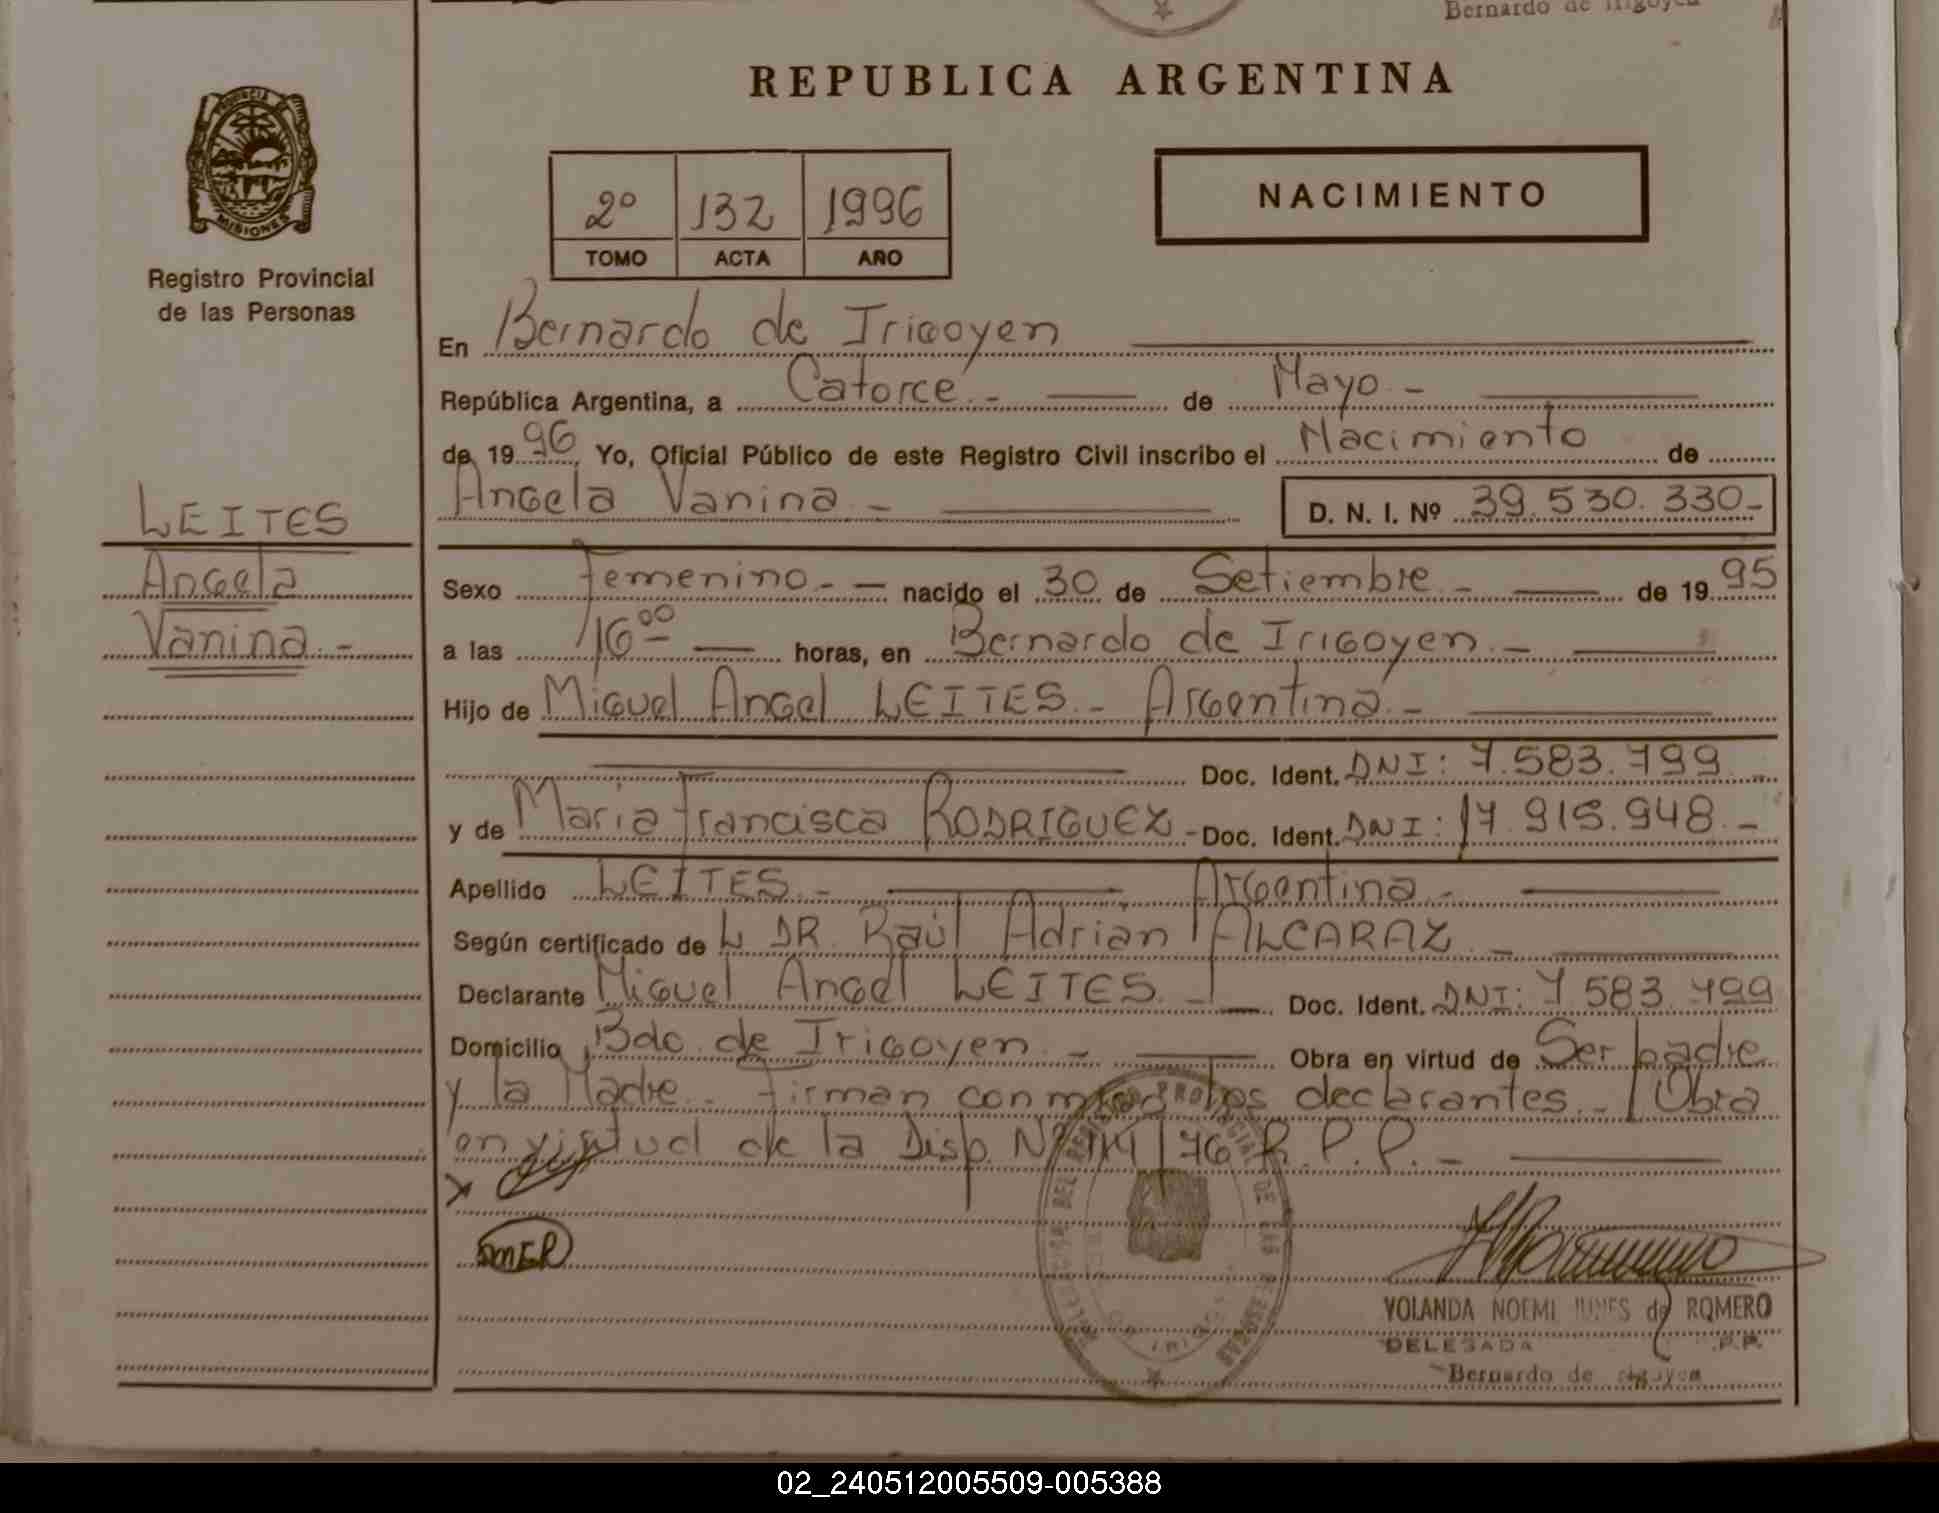 Bernardo de Irigoyen
REPUBLICA ARGENTINA
PROVINCIA DE
MISIONES
Registro Provincial
de las Personas
2º 132 1996
TOMO ACTA AÑO
NACIMIENTO
En Bernardo de Irigoyen
República Argentina, a Catorce.- de Mayo.-
de 1996 Yo, Oficial Público de este Registro Civil inscribo el Nacimiento de
Angela Vanina.- D. N. I. Nº 39.530.330-
LEITES
Angela
Vanina.-
Sexo Femenino.- nacido el 30 de Setiembre.- de 1995
a las 16 00 horas, en Bernardo de Irigoyen.-
Hijo de Miguel Angel LEITES.- Argentina.-
Doc. Ident. DNI: 7.583.799
y de Maria Francisca RODRIGUEZ.- Doc. Ident. DNI: 17.915.948.-
Apellido LEITES.- Argentina.-
Según certificado de L DR. Raúl Adrián ALCARAZ.-
Declarante Miguel Angel LEITES.- Doc. Ident. DNI: 7.583.799
Domicilio Bdo. de Irigoyen.- Obra en virtud de Ser padre
y la Madre.- Firman conmigo los declarantes.- Obra
en virtud de la Disp. Nº /76 R.P.P.-
MER
YOLANDA NOEMI de ROMERO
DELEGADA P.P.
Bernardo de Irigoyen
02_240512005509-005388